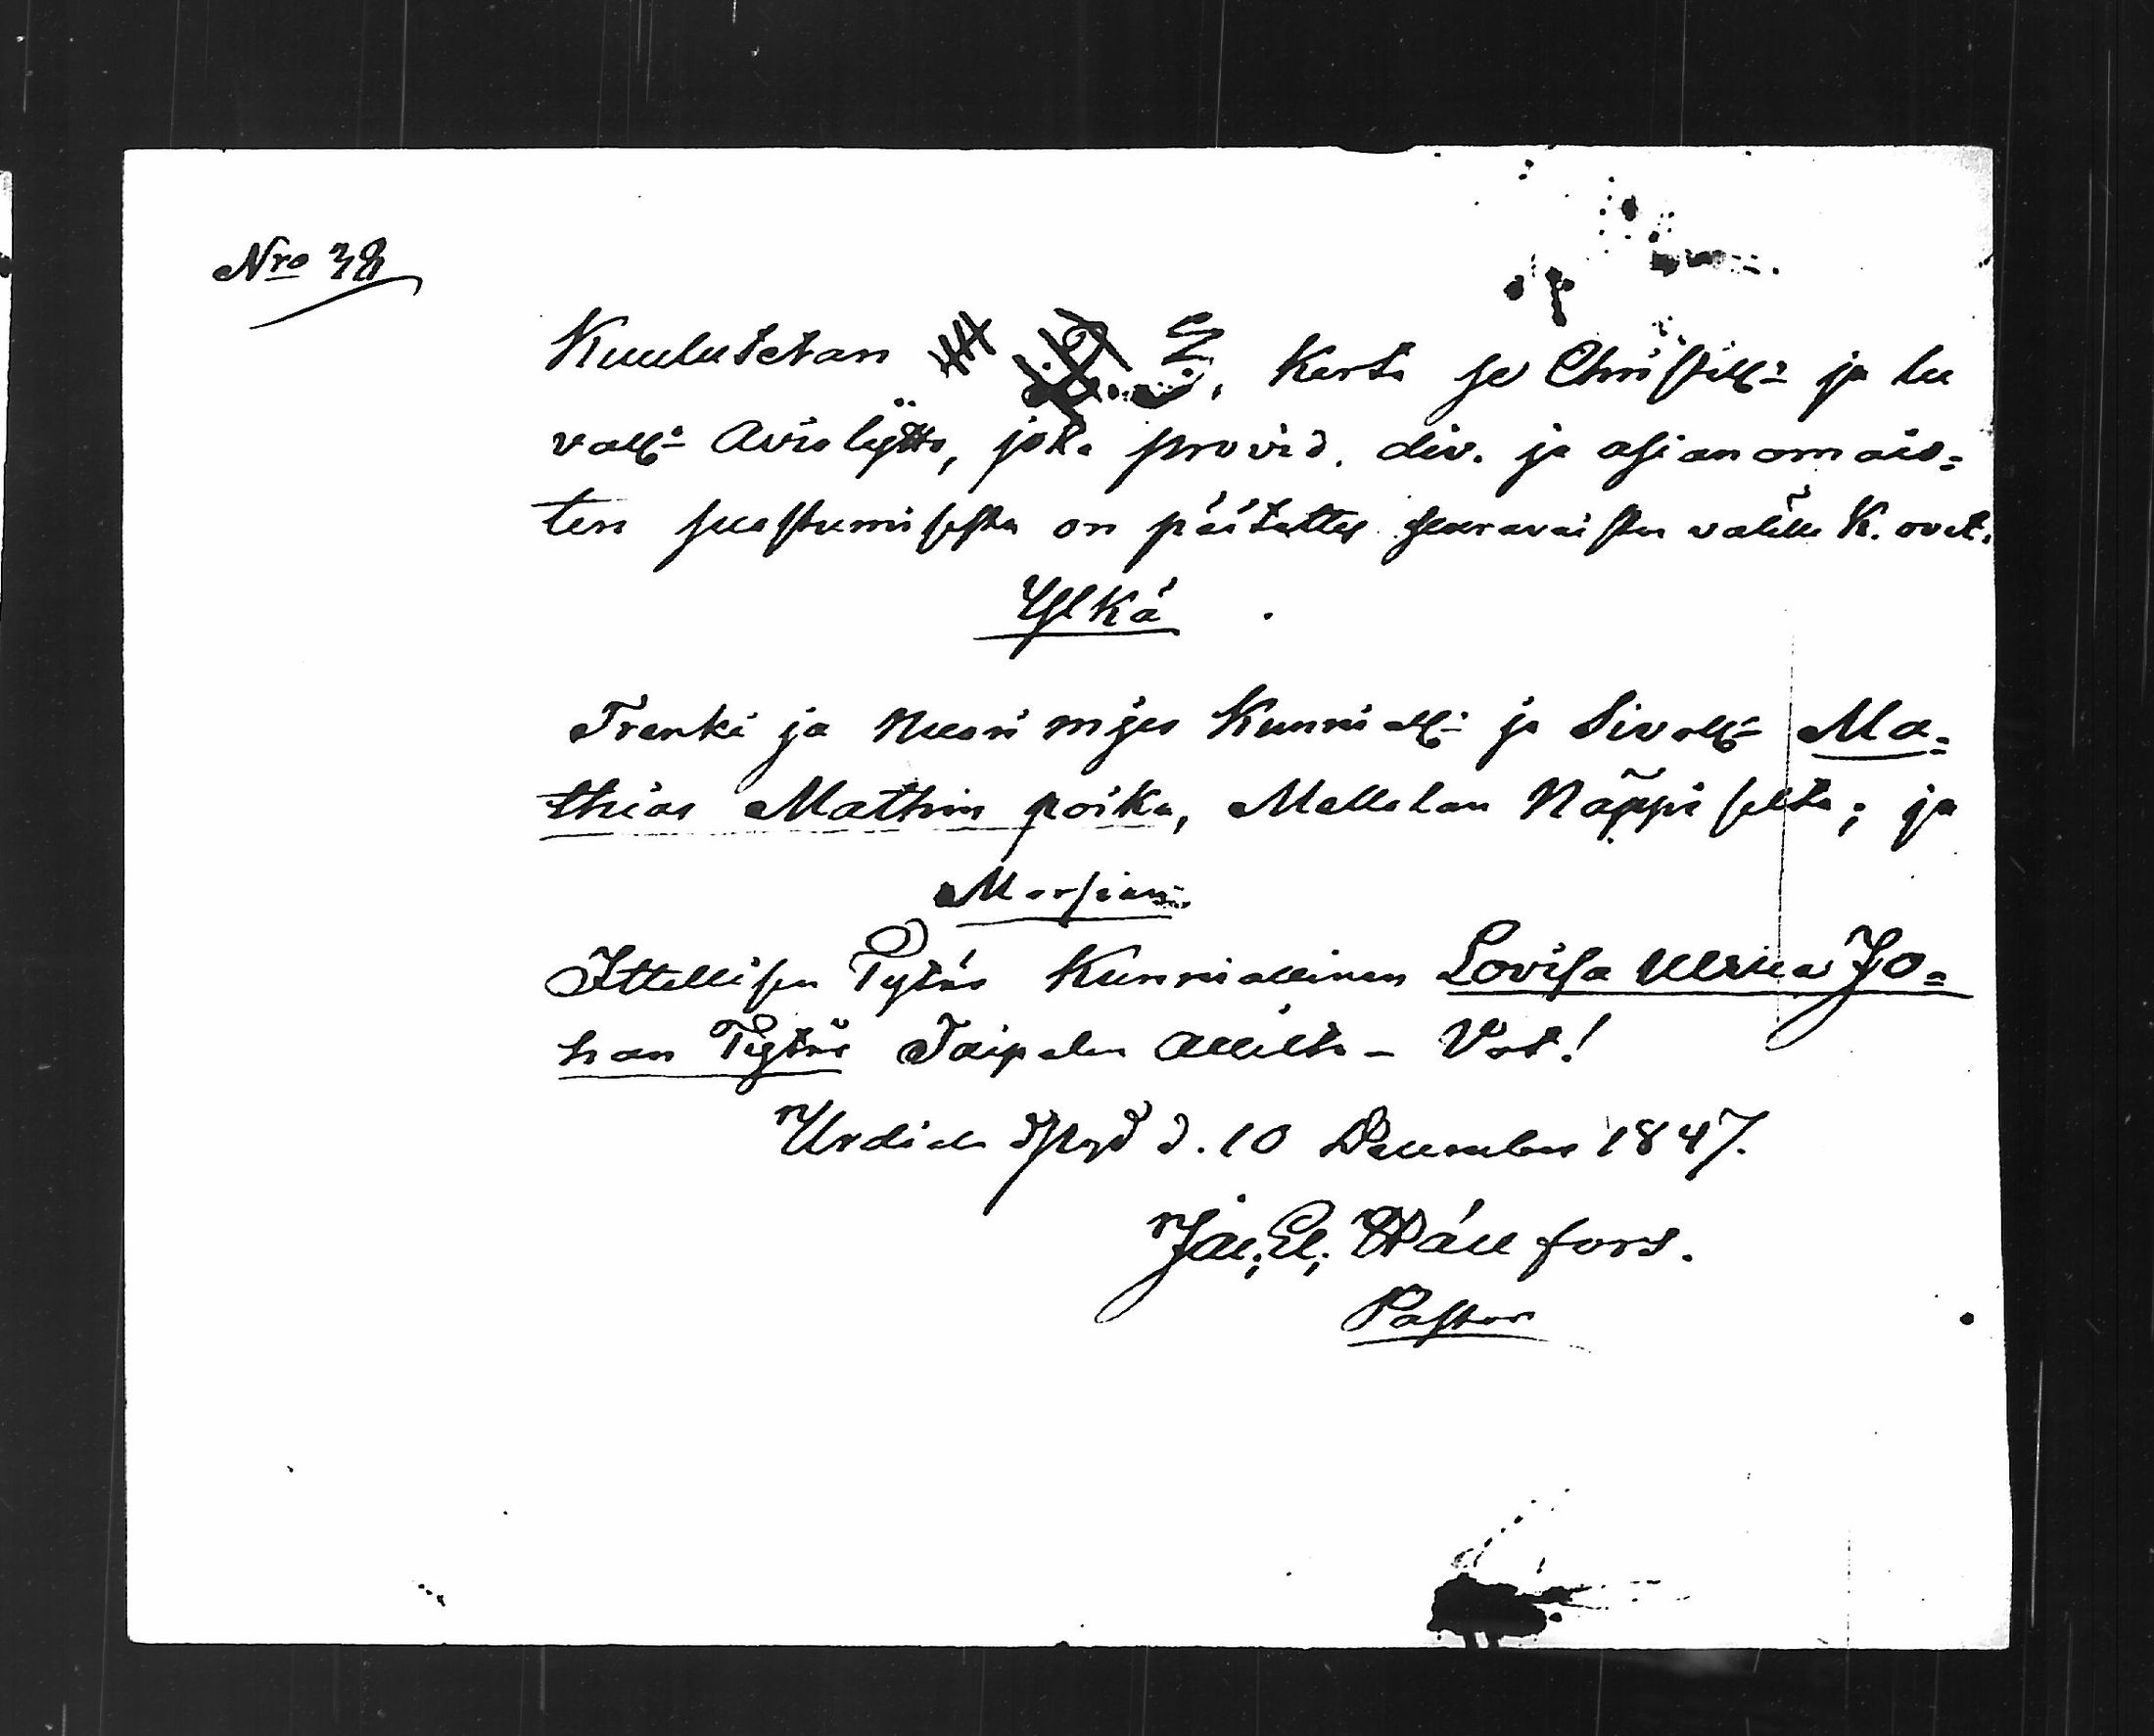 Nro 38
Kuulutetan 3, kerta se Christill: ja lu
vall: Avioliitto, joka provid. div. ja asianomais=
ten suostumisesta on päätetty seuravaisten välille K. ovat.
Ylkä
Trenki ja Nuori mjes Kunniall: ja Sivoll: Ma=
thias Mathin poika, Mellolan Näppiseltä; ja
Morsian:
Ittellisen Tytär Kunniallinen Lovisa Ulrica Jo=
han Tytär Taipalen Allilta – Vot!
Urdiala d. 10 December 1847.
Jac. El. Hällfors.
Pastor